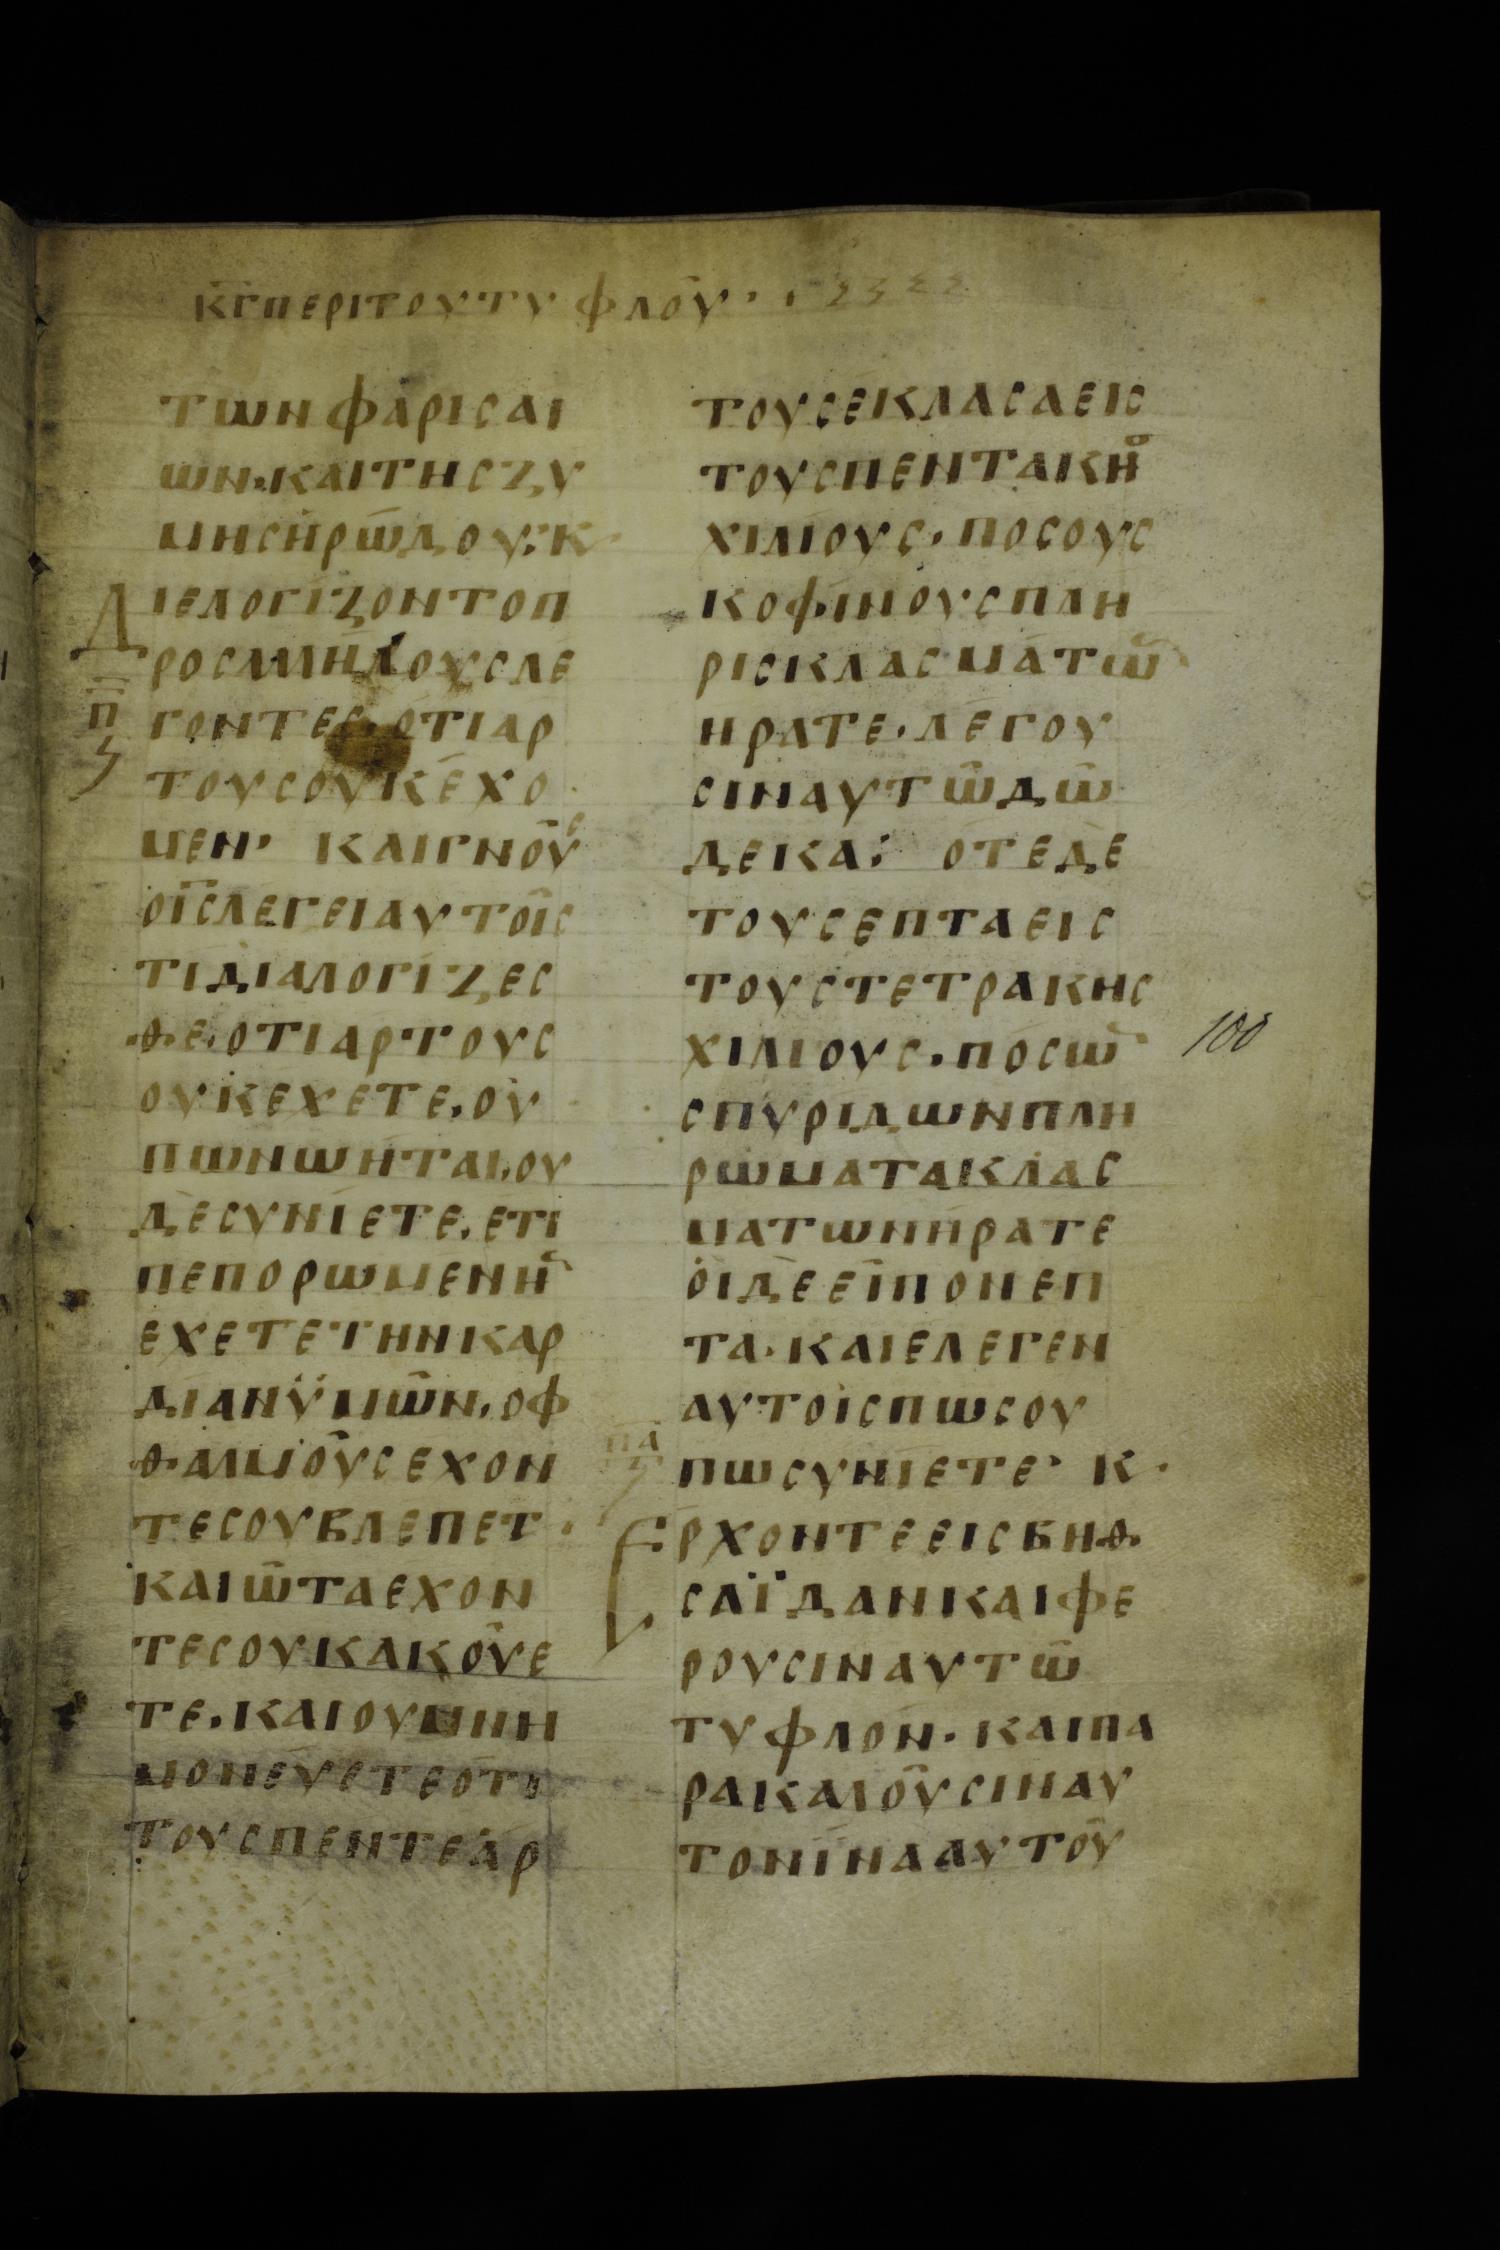 κγ περι του τυφλου
των φαρισαι
ων· και της ζυ
μης ηρωδου· κ
Διελογιζοντο π
π
ϛ
ρος αλληλους λε
γοντες· οτι αρ
τους ουκ εχο
μεν· και γνους
ο ις λεγει αυτοις
τι διαλογιζεσ
θε· οτι αρτους
ουκ εχετε· ου
πω νωηται· ου
δε συνιετε· ετι
πεπορωμενην
εχετε την καρ
διαν ϋμων· οφ
θαλμους εχον
τες ου βλεπετ
και ωτα εχον
τες ουκ ακουε
τε· και ου μνη
μονευετε οτι
τους πεντε αρ
τους εκλασα εις
τους πεντακης
χιλιους· ποσους
κοφινους πλη
ρις κλασματων
ηρατε· λεγου
σιν αυτω δω
δεκα· οτε δε
τους επτα εις
τους τετρακης
χιλιους· ποσων
100
σπυριδων πλη
ρωματα κλασ
ματων ηρατε
οι δε ειπον επ
τα· και ελεγεν
αυτοις πως ου
πα
ϛ
πω συνιετε· κ·
Ερχοντε εις βηθ
σαϊδαν και φε
ρουσιν αυτω
τυφλον· και πα
ρακαλουσιν αυ
τον ινα αυτου